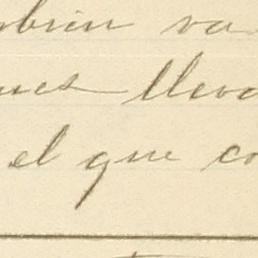 mbien va
nes lleva
el que co